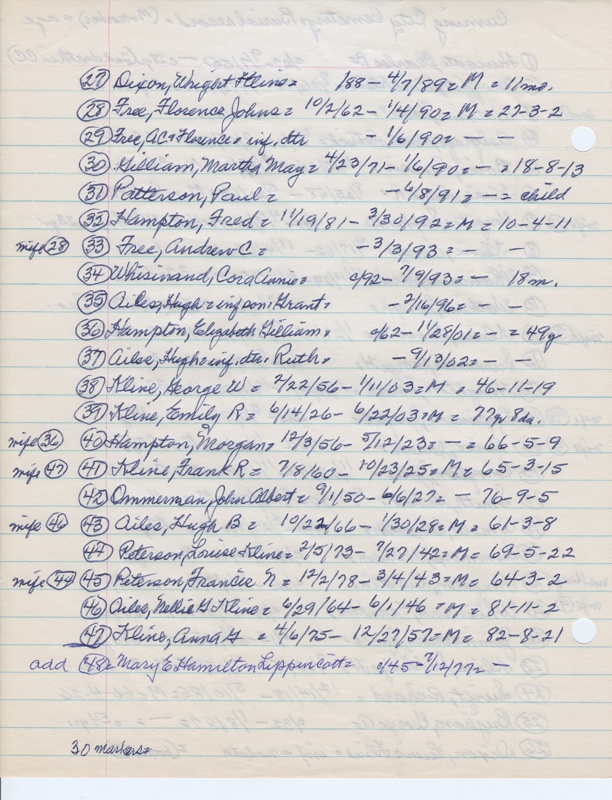 (27) Dixon, Wright Kline = /88 - 4/7/89 = M = 11 mo.
(28) Free, Florence Johns = 10/2/62 - 1/4/90 = M = 27-3-2
(29) Free, AC & Florence = inf. dtr - 1/6/90 = - -
(30) Gilliam, Martha May = 4/23/71 - 1/6/90 = - = 18-8-13
(31) Patterson, Paul = - 6/8/91 = - = child
(32) Hampton, Fred = 11/19/81 - 3/30/92 = M = 10-4-11
wife (28) (33) Free, Andrew C = - 3/3/93 = - -
(34) Whisinand, Cora Annie = c/92 - 7/9/93 = - 18 m.
(35) Ailes, Hugh = inf son: Grant = - 2/16/96 = - -
(36) Hampton, Elizabeth Gilliam = c/62 - 11/28/01 = - = 49y
(37) Ailes, Hugh = inf. dtr. Ruth = - 9/13/02 = - -
(38) Kline, George W = 7/22/56 - 1/11/03 = M = 46-11-19
(39) Kline, Emily R = 6/14/26 - 6/22/03 = M = 77y 8da.
wife (36) (40) Hampton, Morgan = 12/3/56 - 5/12/23 = - = 66-5-9
wife (47) (41) Kline, Frank R = 7/8/60 - 10/23/25 = M = 65-3-15
(42) Ommerman, John Albert = 9/1/50 - 6/6/27 = - 76-9-5
wife (46) (43) Ailes, Hugh B = 10/22/66 - 1/30/28 = M = 61-3-8
(44) Peterson, Louise Kline = 2/5/73 - 7/27/42 = M = 69-5-22
wife (44) (45) Peterson, Francis N = 12/2/78 - 3/4/43 = M = 64-3-2
(46) Ailes, Nellie G Kline = 6/29/64 - 6/1/46 = M = 81-11-2
(47) Kline, Anna G = 4/6/75 - 12/27/57 = M = 82-8-21
add (48) = Mary E Hamilton Lippincott = c/45 - 7/12/77 = -
30 markers =